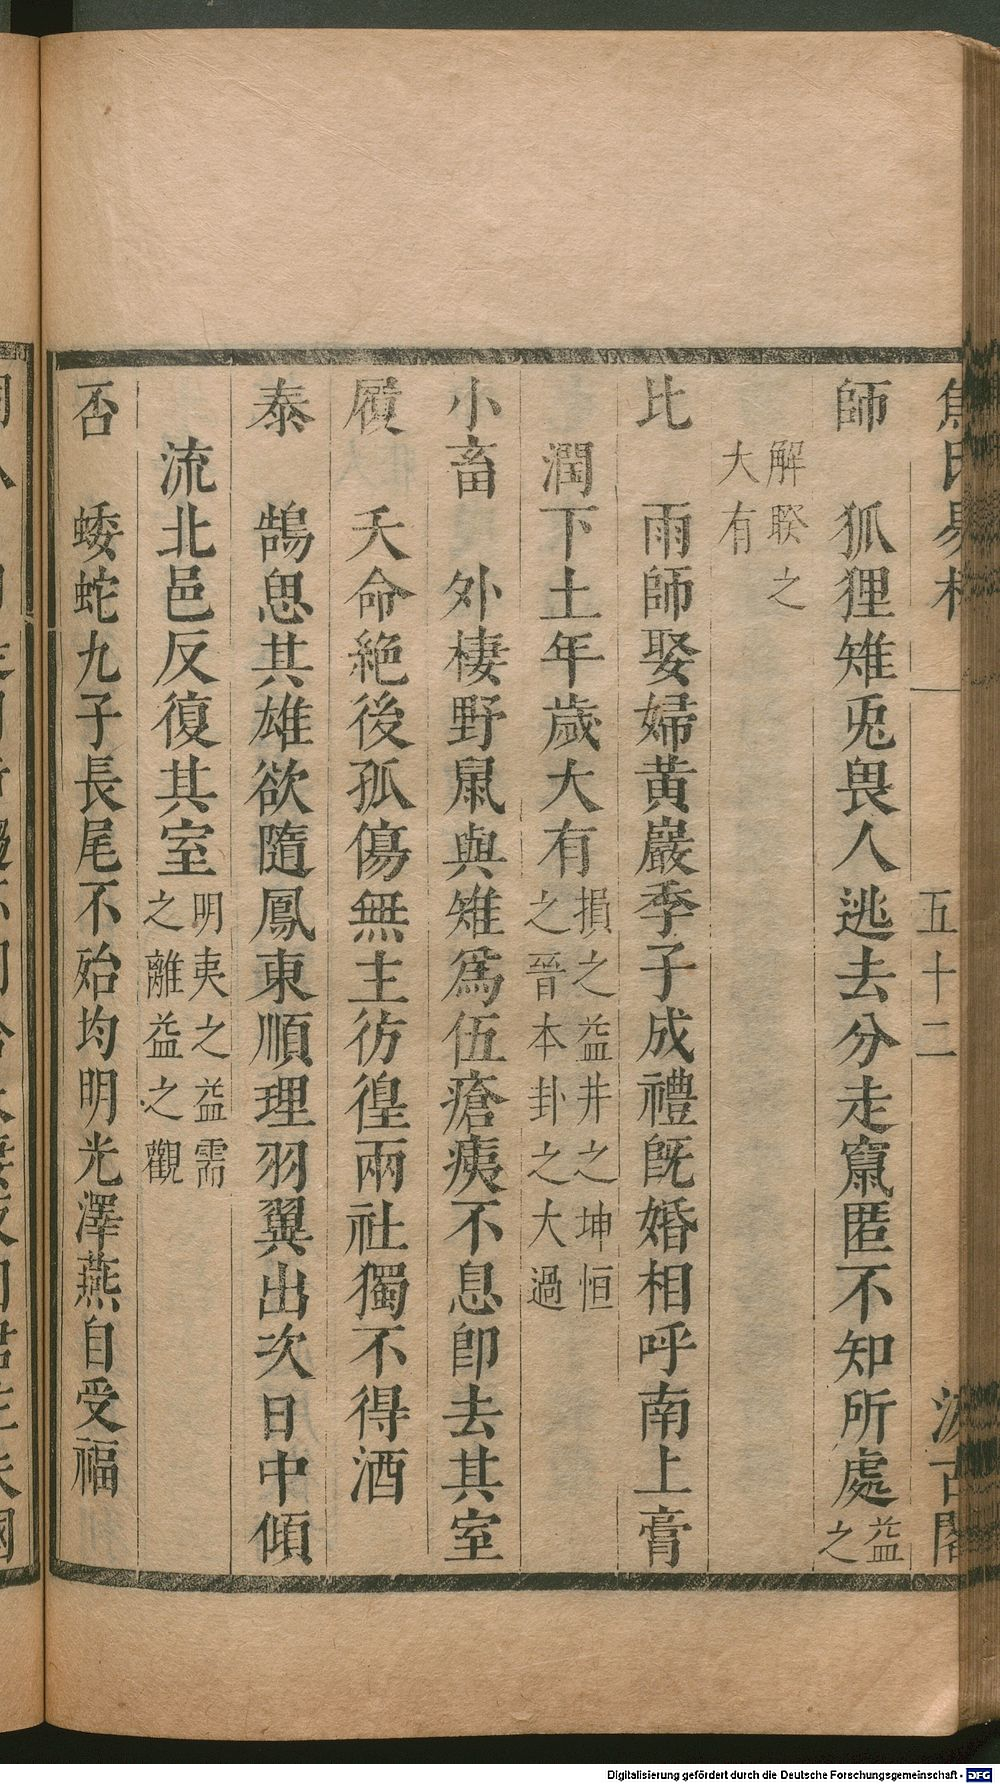 師 狐狸雉兎畏人逃去分走竄匿不知所處益之
解睽之大有
比 雨師娶婦黃巖季子成禮旣婚相呼南上膏
潤下土年歲大有損之益井之坤恒之晉本卦之大過
小畜 外棲野鼠與雉爲伍瘡痍不息卽去其室
履 夭命絕後孤傷無主彷徨兩社獨不得酒
泰 鵠思其雄欲隨鳳東順理羽翼出次日中傾
流北邑反復其室明夷之益需之離益之觀
否 蜲蛇九子長尾不殆均明光澤燕自受福
五十二
Digitalisierung gefördert durch die Deutsche Forschungsgemeinschaft - DFG